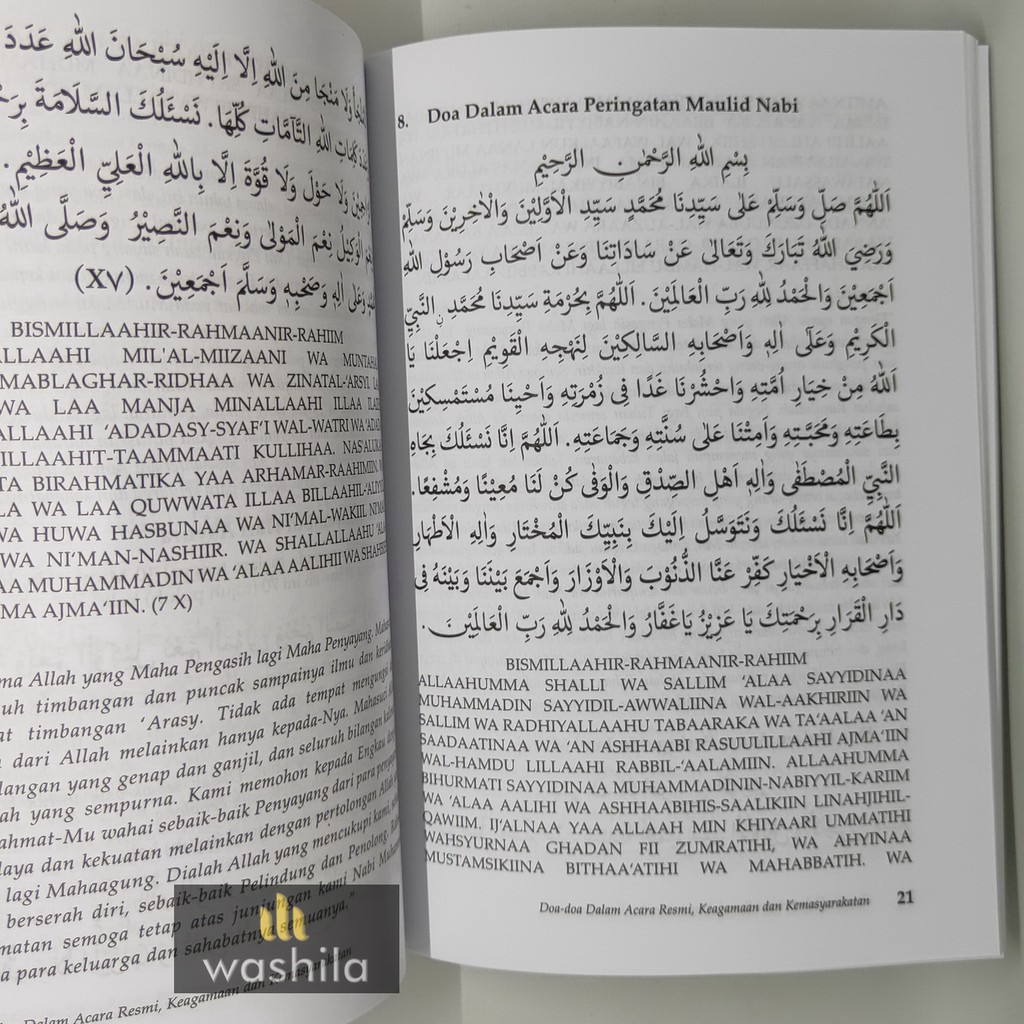 مِنَ اللهِ اِلَّا اِلَيْهِ سُبْحَانَ اللهِ عَدَدَ
اللهِ التَّآمَّاتِ كُلِّهَا. نَسْئَلُكَ السَّلَامَةَ
وَلَا حَوْلَ وَلَا قُوَّةَ اِلَّا بِاللهِ الْعَلِيِّ الْعَظِيْمِ.
الْوَكِيْلُ نِعْمَ الْمَوْلٰى وَنِعْمَ النَّصِيْرُ وَصَلَّى اللهُ
وَعَلٰى اٰلِهٖ وَصَحْبِهٖ وَسَلَّمَ اَجْمَعِيْنَ. (X٧)
BISMILLAAHIR-RAHMAANIR-RAHIIM
ALLAAHI MIL'AL-MIIZAANI WA
MABLAGHAR-RIDHAA WA ZINATAL-'ARSYI.
WA LAA MANJA MINALLAAHI ILLAA
ALLAAHI 'ADADASY-SYAF'I WAL-WATRI WA
ILLAAHIT-TAAMMAATI KULLIHAA.
TA BIRAHMATIKA YAA ARHAMAR-RAAHIMIIN.
LA WA LAA QUWWATA ILLAA
WA HUWA HASBUNAA WA NI'MAL-WAKIIL
WA NI'MAN-NASHIIR. WA SHALLALLAAHU
AA MUHAMMADIN WA 'ALAA AALIHII WA
MA AJMA'IIN. (7 X)
ma Allah yang Maha Pengasih lagi Maha Penyayang.
uh timbangan dan puncak sampainya ilmu dan
at timbangan 'Arasy. Tidak ada tempat
dari Allah melainkan hanya kepada-Nya. Mahasuci
langan yang genap dan ganjil, dan seluruh bilangan
ah yang sempurna. Kami memohon kepada Engkau
ahmat-Mu wahai sebaik-baik Penyayang dari para
laya dan kekuatan melainkan dengan pertolongan Allah
lagi Mahaagung. Dialah Allah yang mencukupi kami,
berserah diri, sebaik-baik Pelindung dan Penolong.
matan semoga tetap atas junjungan kami Nabi
a para keluarga dan sahabatnya semuanya."
Dalam Acara Resmi, Keagamaan dan Kemasyarakatan
washila
8. Doa Dalam Acara Peringatan Maulid Nabi
بِسْمِ اللهِ الرَّحْمٰنِ الرَّحِيْمِ
اَللّٰهُمَّ صَلِّ وَسَلِّمْ عَلٰى سَيِّدِنَا مُحَمَّدٍ سَيِّدِ الْاَوَّلِيْنَ وَالْاٰخِرِيْنَ وَسَلِّمْ
وَرَضِيَ اللهُ تَبَارَكَ وَتَعَالٰى عَنْ سَادَاتِنَا وَعَنْ اَصْحَابِ رَسُوْلِ اللهِ
اَجْمَعِيْنَ وَالْحَمْدُ لِلّٰهِ رَبِّ الْعَالَمِيْنَ. اَللّٰهُمَّ بِحُرْمَةِ سَيِّدِنَا مُحَمَّدِ ِۨالنَّبِيِّ
الْكَرِيْمِ وَعَلٰٓى اٰلِهٖ وَاَصْحَابِهِ السَّالِكِيْنَ لِنَهْجِهِ الْقَوِيْمِ اِجْعَلْنَا يَا
اَللهُ مِنْ خِيَارِ اُمَّتِهٖ وَاحْشُرْنَا غَدًا فِى زُمْرَتِهٖ وَاَحْيِنَا مُسْتَمْسِكِيْنَ
بِطَاعَتِهٖ وَمَحَبَّتِهٖ وَاَمِتْنَا عَلٰى سُنَّتِهٖ وَجَمَاعَتِهٖ. اَللّٰهُمَّ اِنَّا نَسْئَلُكَ بِجَاهِ
النَّبِيِّ الْمُصْطَفٰى وَاٰلِهٖ اَهْلِ الصِّدْقِ وَالْوَفٰى كُنْ لَنَا مُعِيْنًا وَمُشْفِعًا.
اَللّٰهُمَّ اِنَّا نَسْئَلُكَ وَنَتَوَسَّلُ اِلَيْكَ بِنَبِيِّكَ الْمُخْتَارِ وَاٰلِهِ الْاَطْهَارِ
وَاَصْحَابِهِ الْاَخْيَارِ كَفِّرْ عَنَّا الذُّنُوْبَ وَالْاَوْزَارَ وَاجْمَعْ بَيْنَنَا وَبَيْنَهُ فِى
دَارِ الْقَرَارِ بِرَحْمَتِكَ يَا عَزِيْزُ يَاغَفَّارُ وَالْحَمْدُ لِلّٰهِ رَبِّ الْعَالَمِيْنَ.
BISMILLAAHIR-RAHMAANIR-RAHIIM
ALLAAHUMMA SHALLI WA SALLIM 'ALAA SAYYIDINAA
MUHAMMADIN SAYYIDIL-AWWALIINA WAL-AAKHIRIIN WA
SALLIM WA RADHIYALLAAHU TABAARAKA WA TA'AALAA 'AN
SAADAATINAA WA 'AN ASHHAABI RASUULILLAAHI AJMA'IIN
WAL-HAMDU LILLAAHI RABBIL-'AALAMIIN. ALLAAHUMMA
BIHURMATI SAYYIDINAA MUHAMMADININ-NABIYYIL-KARIIM
WA 'ALAA AALIHI WA ASHHAABIHIS-SAALIKIIN LINAHJIHIL-
QAWIIM. IJ'ALNAA YAA ALLAAH MIN KHIYAARI UMMATIHI
WAHSYURNAA GHADAN FII ZUMRATIHI, WA AHYINAA
MUSTAMSIKIINA BITHAA'ATIHI WA MAHABBATIH. WA
Doa-doa Dalam Acara Resmi, Keagamaan dan Kemasyarakatan 21